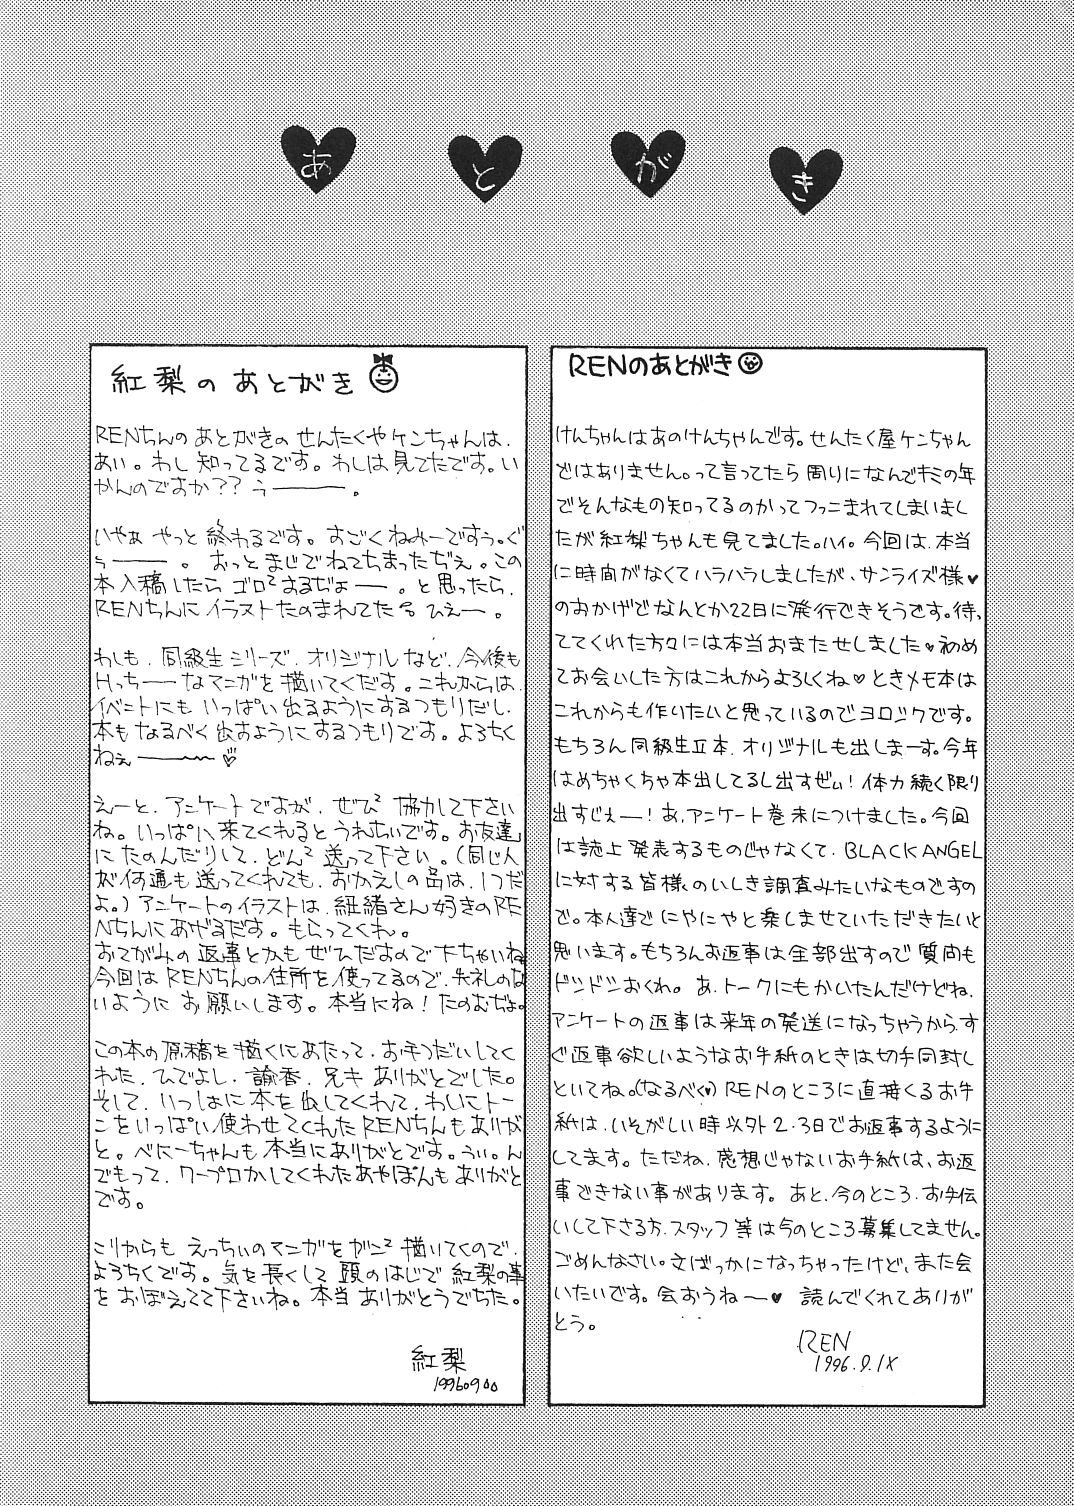 あとがき
紅梨のあとがき
RENちんのあとがきのせんたくやケンちゃんは、
あい。わし知ってるです。わしは見てたです。い
かんのですか??ぅーーー。
いやぁやっと終わるです。すごくねみーですぅ。ぐ
ぅーーー。おっとまじでねてちまったぢぇ。この
本入稿したらゴロ²するぢょーー。と思ったら、
RENちんにイラストたのまれてたる ひえーー。
わしも、同級生シリーズ、オリジナルなど、今後も
Hっちーーなマンガを描いてくだす。これからは、
イベントにもいっぱい出るようにするつもりだし、
本もなるべく出すようにするつもりです。よろちく
ねぇーーー♡
えーと、アンケートですが、ぜひ²協力して下さい
ね。いっぱい来てくれるとうれちいです。お友達
にたのんだりして、どん²送って下さい。(同じ人
が何通も送ってくれても、おかえしの品は、1つだ
よ。)アンケートのイラストは、紐緒さん好きのRE
Nちんにあげるだす。もらってくれ。
おてがみの返事とかもぜひだすので下ちゃいね
今回はRENちんの住所を使ってるので、失礼のな
いようにお願いします。本当にね!たのむぢょ。
この本の原稿を描くにあたって、お手つだいしてく
れた、ひでよし、諭香、兄キありがとでした。
そして、いっしょに本を出してくれて、わしにトー
ンをいっぱい使わせてくれたRENちんもありが
と。べにーちゃんも本当にありがとです。うぃ。ん
でもって、ワープロかしてくれたあやぽんもありがと
です。
これからもえっちぃのマンガをガン²描いてくので、
よろちくです。気を長くして頭のはじで紅梨の事
をおぼえてて下さいね。本当ありがとうでちた。
紅梨
RENのあとがき
けんちゃんはあのけんちゃんです。せんたく屋ケンちゃん
ではありません。って言ってたら周りになんでキミの年
でそんなもの知ってるのかってつっこまれてしまいまし
たが紅梨ちゃんも見てました。ハイ。今回は、本当
に時間がなくてハラハラしましたが、サンライズ様♥
のおかげでなんとか22日に発行できそうです。待っ
ててくれた方々には本当おまたせしました♥初め
てお会いした方はこれからよろしくね♡ときメモ本は
これからも作りたいと思っているのでヨロシクです。
もちろん同級生II本、オリジナルも出しまーす。今年
はめちゃくちゃ本出してるし出すぜぃ!体力続く限り
出すじぇー!あ、アンケート巻末につけました。今回
は誌上発表するものじゃなくて、BLACK ANGEL
に対する皆様のいしき調査みたいなものですの
で。本人達でにやにやと楽しませていただきたいと
思います。もちろんお返事は全部出すので質問も
ドシドシおくれ。あ、トークにもかいたんだけどね、
アンケートの返事は来年の発送になっちゃうから、す
ぐ返事欲しいようなお手紙のときは切手同封し
といてね。(なるべく♡)RENのところに直接くるお手
紙は、いそがしい時以外2・3日でお返事するように
してます。ただね、感想じゃないお手紙は、お返
事できない事があります。あと、今のところ、お手伝
いして下さる方、スタッフ等は今のところ募集してません。
ごめんなさい。文ばっかになっちゃったけど、また会
いたいです。会おうね〜♥ 読んでくれてありが
とう。
REN
1996.9.1X